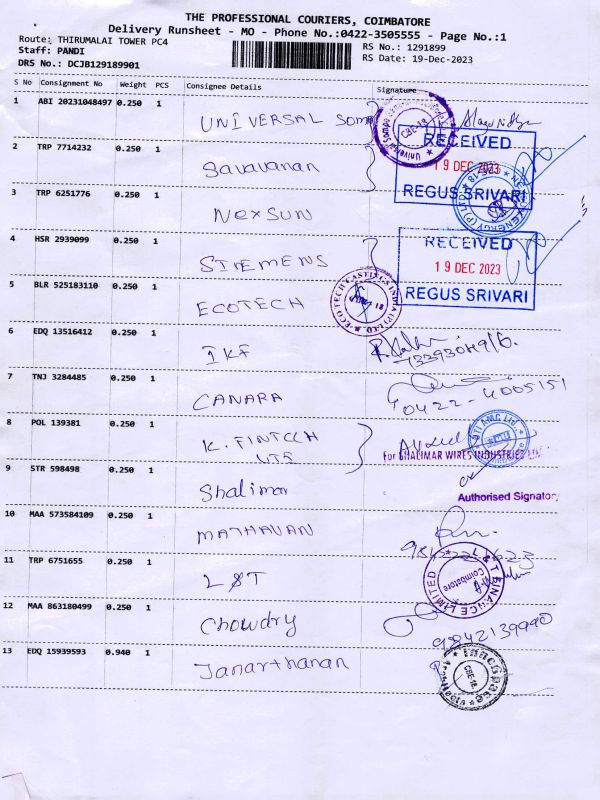 THE PROFESSIONAL COURIERS, COIMBATORE
Delivery Runsheet - MO - Phone No.:0422-3505555 - Page No.:1
Route: THIRUMALAI TOWER PC4
RS No.: 1291899
Staff: PANDI
RS Date: 19-Dec-2023
DRS No.: DCJB129189901
S No Consignment No Weight PCS Consignee Details Signature
1 ABI 20231048497 0.250 1 UNIVERSAL Sompo
RECEIVED
19 DEC 2023
REGUS SRIVARI
2 TRP 7714232 0.250 1 Saravanan
3 TRP 6251776 0.250 1 Nexsun
4 HSR 2939099 0.250 1 SIEMENS
RECEIVED
19 DEC 2023
REGUS SRIVARI
5 BLR 525183110 0.250 1 ECOTECH
ECOTECH CASTINGS INDIA (P) LTD.
6 EDQ 13516412 0.250 1 IKF
7 TNJ 3284485 0.250 1 CANARA
0422-4005151
8 POL 139381 0.250 1 K. FINTECH
UTI
UTI AMC Ltd.
For SHALIMAR WIRES INDUSTRIES
9 STR 598498 0.250 1 Shalimar
Authorised Signatory
10 MAA 573584109 0.250 1 MATHAVAN
11 TRP 6751655 0.250 1 L&T
L & T FINANCE LIMITED
Coimbatore
12 MAA 863180499 0.250 1 Chowdry
9842139990
13 EDQ 15939593 0.940 1 Janarthanan
CBE-18